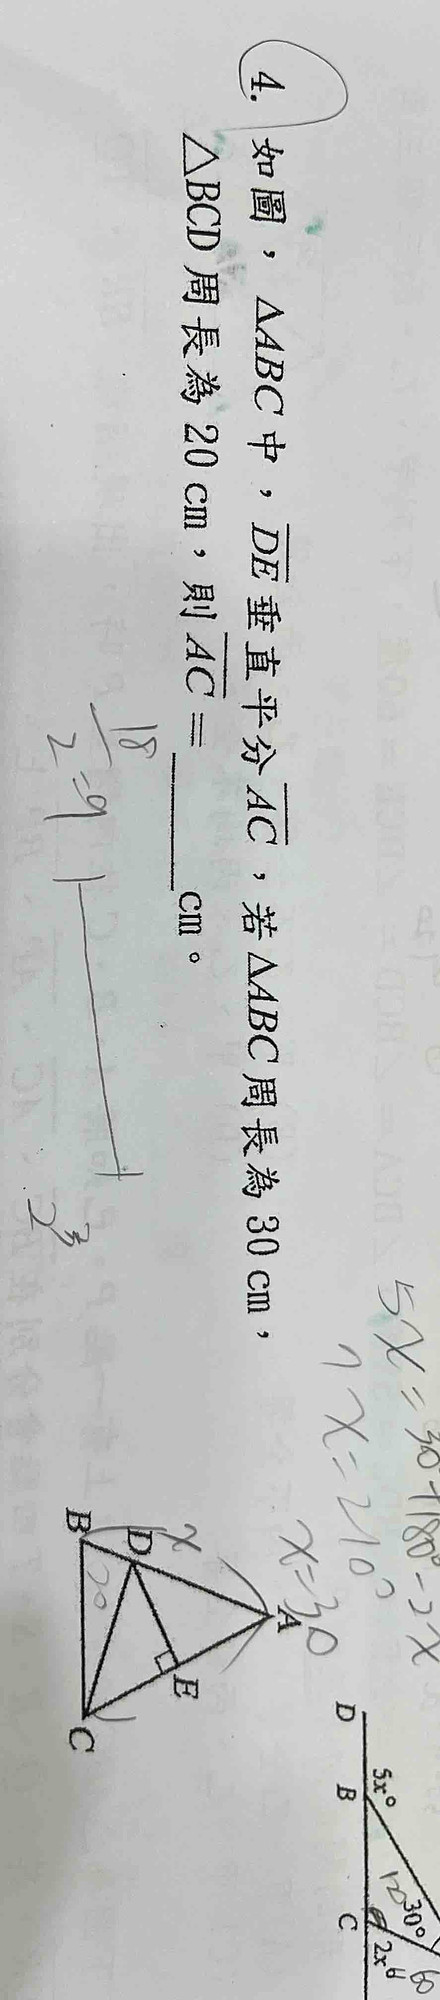 4. 如圖，△ABC中，DE垂直平分AC，若△ABC周長為30 cm，
△BCD周長為20 cm，則AC＝＿＿＿cm。
18
2
=9
5x=30+180°-2x
7x=210°
x=30
A
x
D
E
B
20
C
D
B
C
5x°
30°
2x°
60